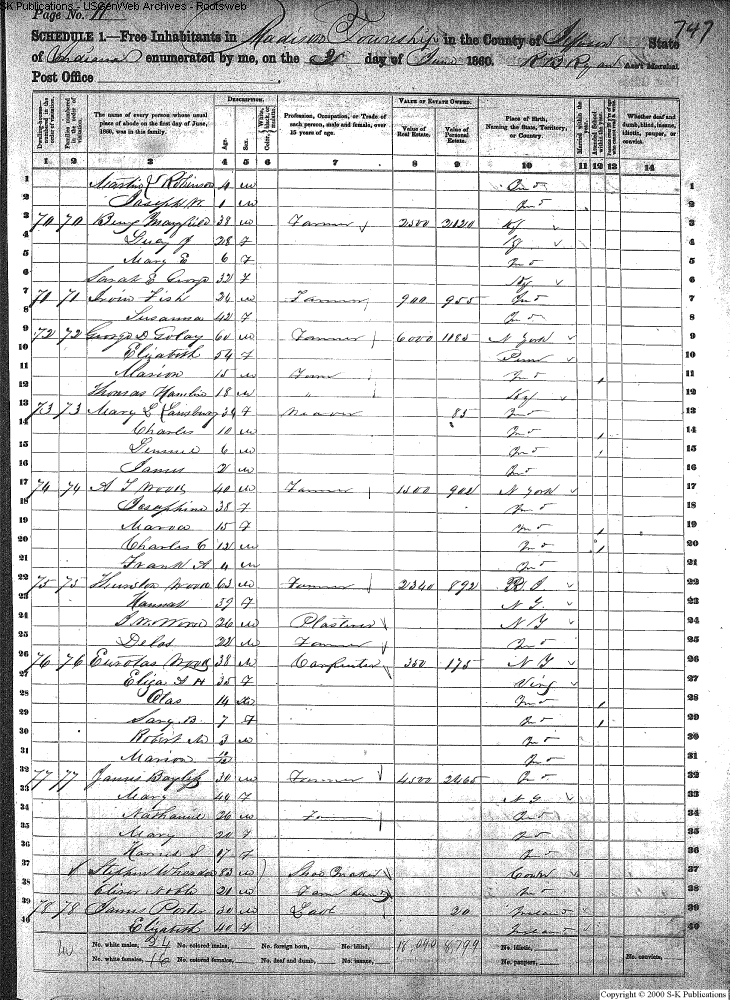 S-K Publications - USGenWeb Archives - Rootsweb
Page No. 11
747
SCHEDULE 1.—Free Inhabitants in Madison Township in the County of Jefferson State
of Indiana enumerated by me, on the 2d day of June 1860. R B Ryan Ass't Marshal
Post Office
Dwelling-houses—numbered in the order of visitation.
Families numbered in the order of visitation.
The name of every person whose usual place of abode on the first day of June, 1860, was in this family.
DESCRIPTION.
Age.
Sex.
Profession, Occupation, or Trade of each person, male and female, over 15 years of age.
VALUE OF ESTATE OWNED.
Value of Real Estate.
Value of Personal Estate.
Place of Birth, Naming the State, Territory, or Country.
Married within the year.
Whether deaf and dumb, blind, insane, idiotic, pauper, or convict.
1 2 3 4 5 6 7 8 9 10 11 12 13 14
1 Martin Robinson 4 m Ind 1
2 Joseph W. 1 m Ind 2
3 70 70 Benj Mayfield 38 m Farmer 2500 2120 Ky 3
4 Lucy J 28 f Ky 4
5 Mary E 6 f Ind 5
6 Sarah E George 32 f Ky 6
7 71 71 Irvin Fish 26 m Farmer 900 955 Ind 7
8 Susanna 42 f Ind 8
9 72 72 George D Golay 60 m Farmer 6000 1185 N York 9
10 Elizabeth 54 f Penn 10
11 Marion 15 m Farm Ind 11
12 Thomas Hamlin 18 m " Ky 12
13 73 73 Mary E 34 f Weaver 85 Ind 13
14 Charles 10 m Ind 14
15 6 m Ind 15
16 James 2 m Ind 16
17 74 74 A T Wood 40 m Farmer 1500 902 N York 17
18 Josephine 38 f Ind 18
19 15 f Ind 19
20 Charles C 12 m Ind 20
21 Frank A 4 m Ind 21
22 75 75 Wood 63 m Farmer 2340 892 R. I 22
23 Hannah 39 f N Y. 23
24 Wood 26 m Plasterer N Y 24
25 Delos 22 m Farmer Ind 25
26 76 76 Eurotas Wood 38 m Carpenter 350 175 N Y 26
27 Eliza A H 35 f Virg 27
28 Olas 14 m Ind 28
29 Sary B. 7 f Ind 29
30 Robert M 3 m Ind 30
31 Marion Ind 31
32 77 77 James Bayless 30 m Farmer 4500 2465 Ind 32
33 Mary 44 f N Y 33
34 Nathaniel 26 m Ind 34
35 Mary 20 f Ind 35
36 Harriet S 17 f Ind 36
37 Stephen Wheadon 83 m Shoe Maker Conn 37
38 Noble 21 m Farm Hand Ind 38
39 78 78 James Porter 30 m Labor 20 Ireland 39
40 Elizabeth 40 f Ireland 40
No. white males, 24 No. colored males, No. foreign born, No. blind, No. idiotic,
No. white females, 16 No. colored females, No. deaf and dumb, No. insane, No. paupers, No. convicts,
Copyright © 2000 S-K Publications